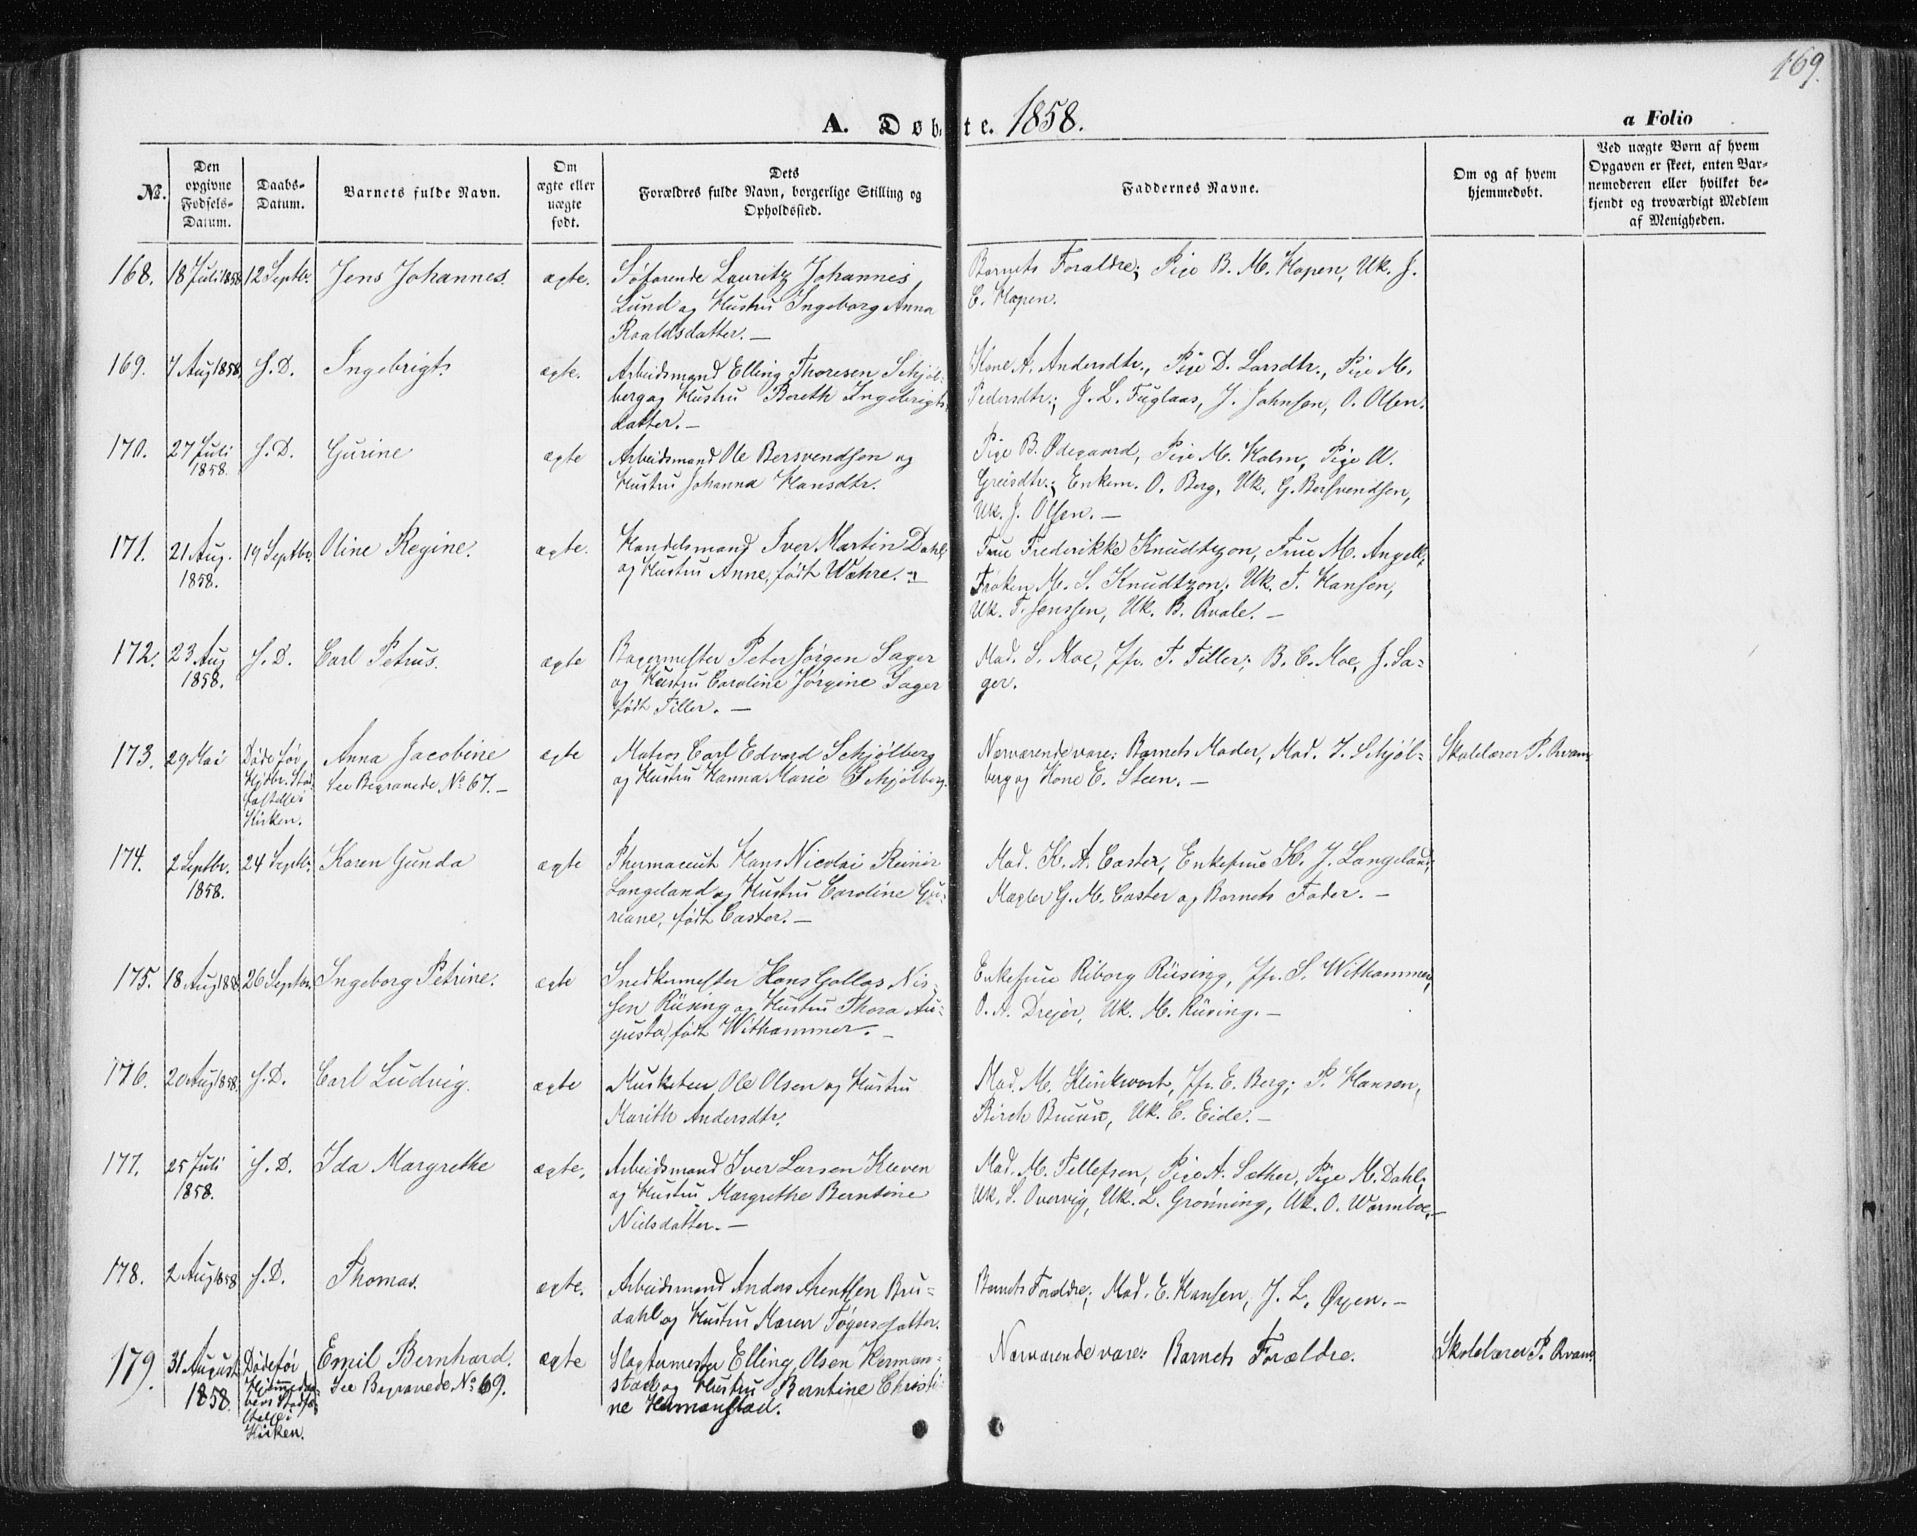 169.
A. Døbte. 1858. a Folio
No.
Den opgivne Fødsels-Datum.
Daabs-Datum.
Barnets fulde Navn.
Om ægte eller uægte født.
Dets Forældres fulde Navn, borgerlige Stilling og Opholdssted.
Faddernes Navne.
Om og af hvem hjemmedøbt.
Ved uægte Børn af hvem Opgaven er skeet, enten Barnemoderen eller hvilket bekjendt og troværdigt Medlem af Menigheden.
168. 18 Juli 1858 12 Septbr. Jens Johannes. ægte. Søfarende Lauritz Johannes
Lund og Hustru Ingeborg Anna
Roaldsdatter. —
Barnets Forældre; Pige B. M. Hopen, Uk. J.
C. Hopen.
169. 7 Aug 1858. S. D. Ingebrigt. ægte. Arbeidsmand Elling Thoresen Schjøl-
berg og Hustru Bereth Ingebrigts
datter. —
Kone A. Andersdtr., Pige D. Larsdtr., Pige M.
Pedersdtr.; J. L. Fuglaas, J. Johnsen, O. Olsen.
170. 27 Juli
1858. S. D. Gurine ægte Arbeidsmand Ole Bersvendsen og
Hustru Johanna Hansdtr.
Pige B. Ødegaard, Pige M. Holm, Pige A.
Greisdtr.; Enkem. O. Berg, Uk. G. Bersvendsen,
Uk. J. Olsen. —
171. 21 Aug.
1858. 19 Septbr. Oline Regine. ægte. Handelsmand Iver Martin Dahl
og Hustru Anne, født Wæhre.
Frue Frederikke Knudtzon, Frue M. Angell,
Frøken M. S. Knudtzon; Uk. T. Hansen,
Uk. T. Jenssen, Uk. B. Qvale. —
172. 23 Aug
1858. S. D. Carl Petrus. ægte Bagermester Peter Jørgen Sager
og Hustru Caroline Jørgine Sager
født Tiller. —
Mad. S. Moe, Jfr. T. Tiller; B. C. Moe, J. Sa-
ger.
173. 29 Mai Døde før
Hjdbr. Stad-
fæstelse i
Kirken. Anna Jacobine
see Begravede No 67. — ægte Matros Carl Edvard Schjølberg
og Hustru Hanna Marie Schjølberg.
Nærværende vare: Barnets Moder, Mad. J. Schjøl-
berg og Kone E. Steen. —
Skolelærer P. Qvam
174. 2 Septbr.
1858. 24 Septbr. Karen Gunda ægte Phermaceut Hans Nicolai Reinir
Langeland og Hustru Caroline Gu-
riane, født Caster. —
Mad. K. A. Caster, Enkefrue K. J. Langeland,
Mægler G. M. Caster og Barnets Fader. —
175. 18 Aug 1858 26 Septbr. Ingeborg Petrine. ægte Snedkermester Hans Gallas Nis-
sen Rüsing og Hustru Thora Au-
gusta, født Withammer. —
Enkefrue Riborg Rüsing, Jfr. S. Withammer,
O. A. Drejer, Uk. M. Rüsing. —
176. 20 Aug 1858. S. D. Carl Ludvig. ægte Musketeer Ole Olsen og Hustru
Marith Andersdtr.
Mad. M. Klinkwort, Jfr. E. Berg; P. Hansen,
Birch Bruun, Uk. C. Eide. —
177. 25 Juli
1858. S. D. Ida Margrethe ægte. Arbeidsmand Iver Larsen Kleven
og Hustru Margrethe Berntine
Nielsdatter. —
Mad. M. Tellefsen, Pige A. Sæther, Pige M. Dahl;
Uk. S. Overvig, Uk. L. Grønning, Uk. O. Warmboe. —
178. 2 Aug 1858 S. D. Thomas. ægte. Arbeidsmand Anders Arentsen Bru-
dahl og Hustru Maren Tøgersdatter.
Barnets Forældre; Mad. E. Hansen, J. L. Øyen. —
179. 31 August
1858. Døde før
Hjemmedaa-
bens Stadfæ-
stelse i
Kirken. Emil Bernhard.
See Begravede No 69. ægte Slagtermester Elling Olsen Herman-
stad og Hustru Berntine Christi-
ne Hermanstad.
Nærværende vare: Barnets Forældre.
Skolelærer P. Qvam